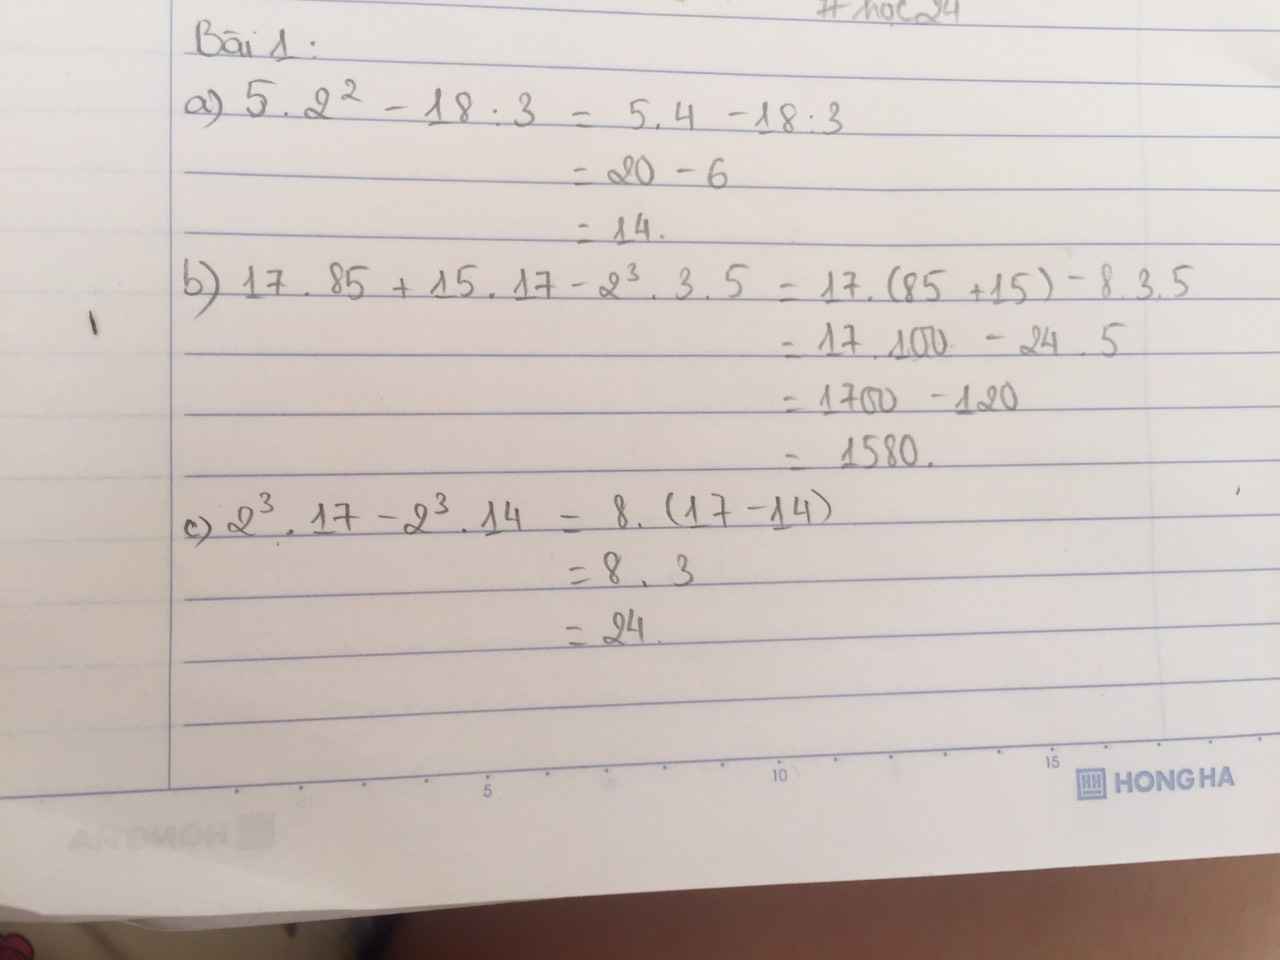 #học24
Bài 1:
a) 5.2² - 18:3 = 5.4 - 18:3
= 20 - 6
= 14.
b) 17.85 + 15.17 - 2³.3.5 = 17.(85 + 15) - 8.3.5
= 17.100 - 24.5
= 1700 - 120
= 1580.
c) 2³.17 - 2³.14 = 8.(17 - 14)
= 8.3
= 24.
5 10 15
HONG HA